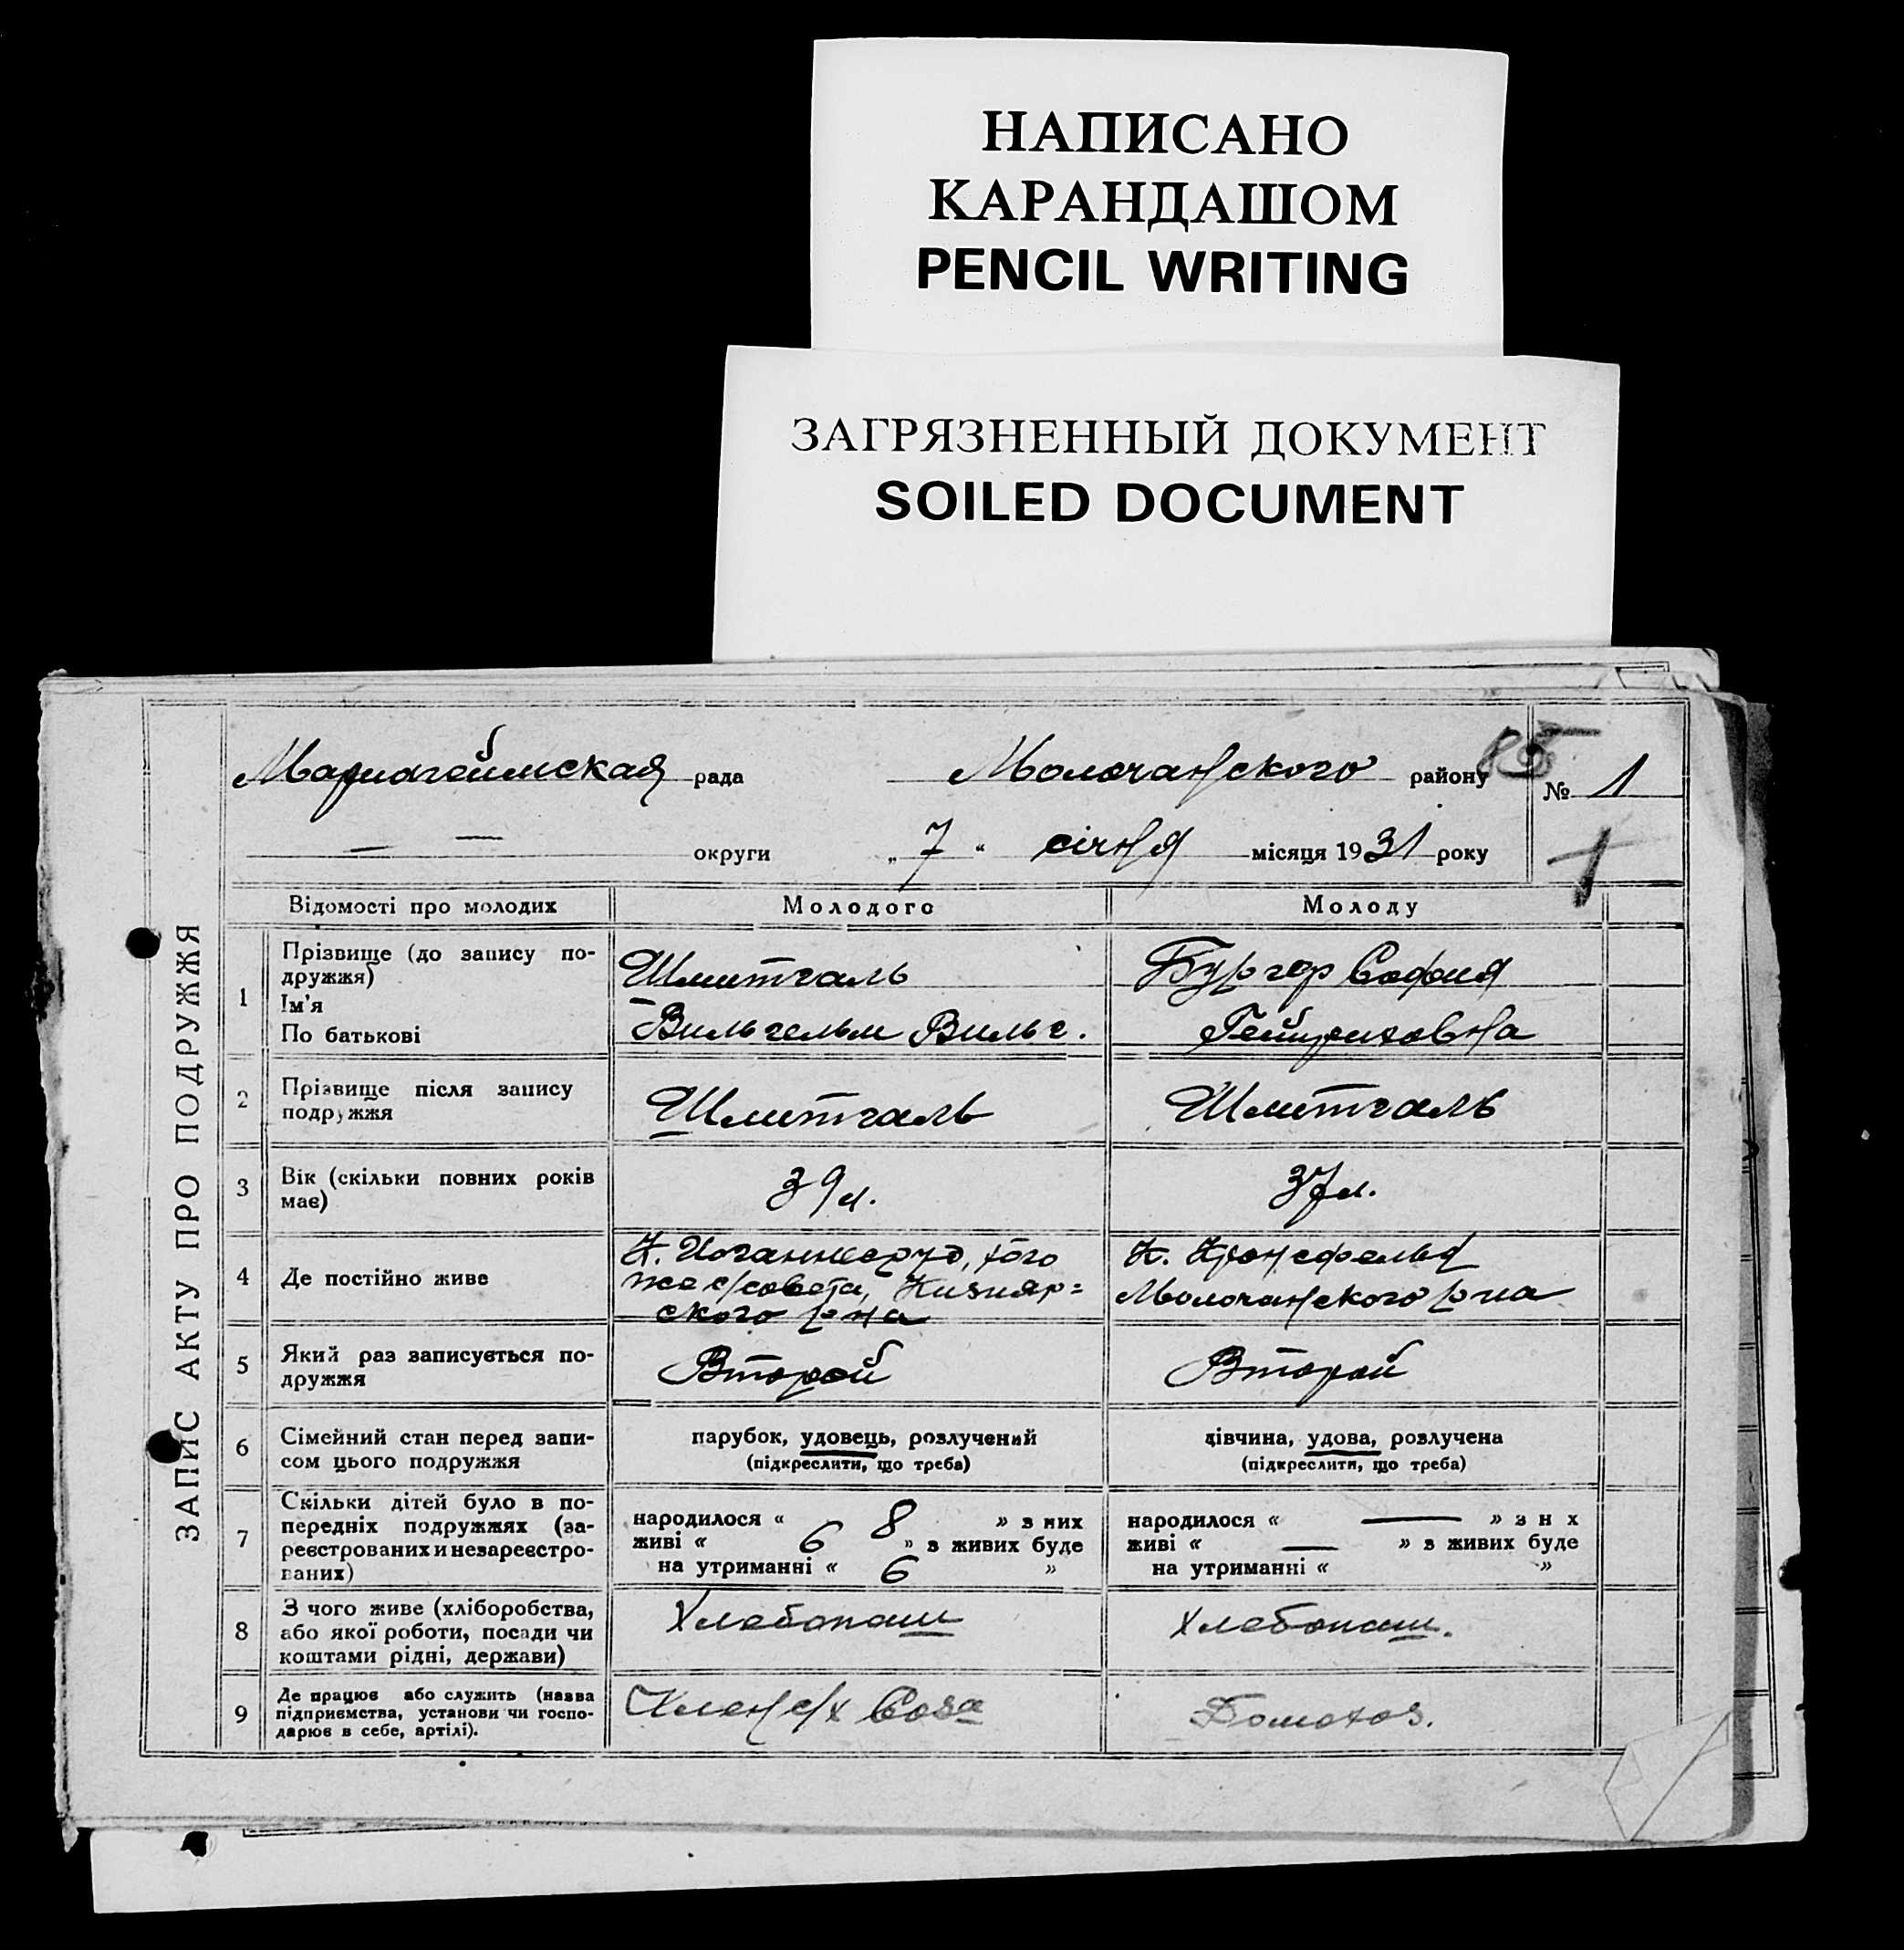 НАПИСАНО
КАРАНДАШОМ
PENCIL WRITING
ЗАГРЯЗНЕННЫЙ ДОКУМЕНТ
SOILED DOCUMENT
ЗАПИС АКТУ ПРО ПОДРУЖЖЯ
85
Мариагеймская рада Молочанского району № 1
— — округи „ 7 “ січня місяця 1931 року
1
Відомості про молодих Молодого Молоду
1 Прізвище (до запису по-
дружжя)
Ім'я
По батькові
Шмитгаль
Вильгельм Вильг.
Бургер София
Гейнриховна
2 Прізвище після запису
подружжя
Шмитгаль
Шмитгаль
3 Вік (скільки повних років
має)
39 л.
37 л.
4 Де постійно живе
К. Иоганнесруэ, того
же с/совета, Кизияр=
ского р на
К. Кронсфельд
Молочанского р на
5 Який раз записується по-
дружжя
Второй
Второй
6 Сімейний стан перед запи-
сом цього подружжя
парубок, удовець, розлучений
(підкреслити, що треба)
дівчина, удова, розлучена
(підкреслити, що треба)
7 Скільки дітей було в по-
передніх подружжях (за-
реєстрованих и незареєстро-
ваних)
народилося « 8 » з них
живі « 6 » з живих буде
на утриманні « 6 »
народилося « — » з н х
живі « — » з живих буде
на утриманні « »
8 З чого живе (хліборобства,
або якої роботи, посади чи
коштами рідні, держави)
Хлебопаш
Хлебопаш.
9 Де працює або служить (назва
підприємства, установи чи госпо-
дарює в себе, артілі).
Член с/х Соза
Домохоз.